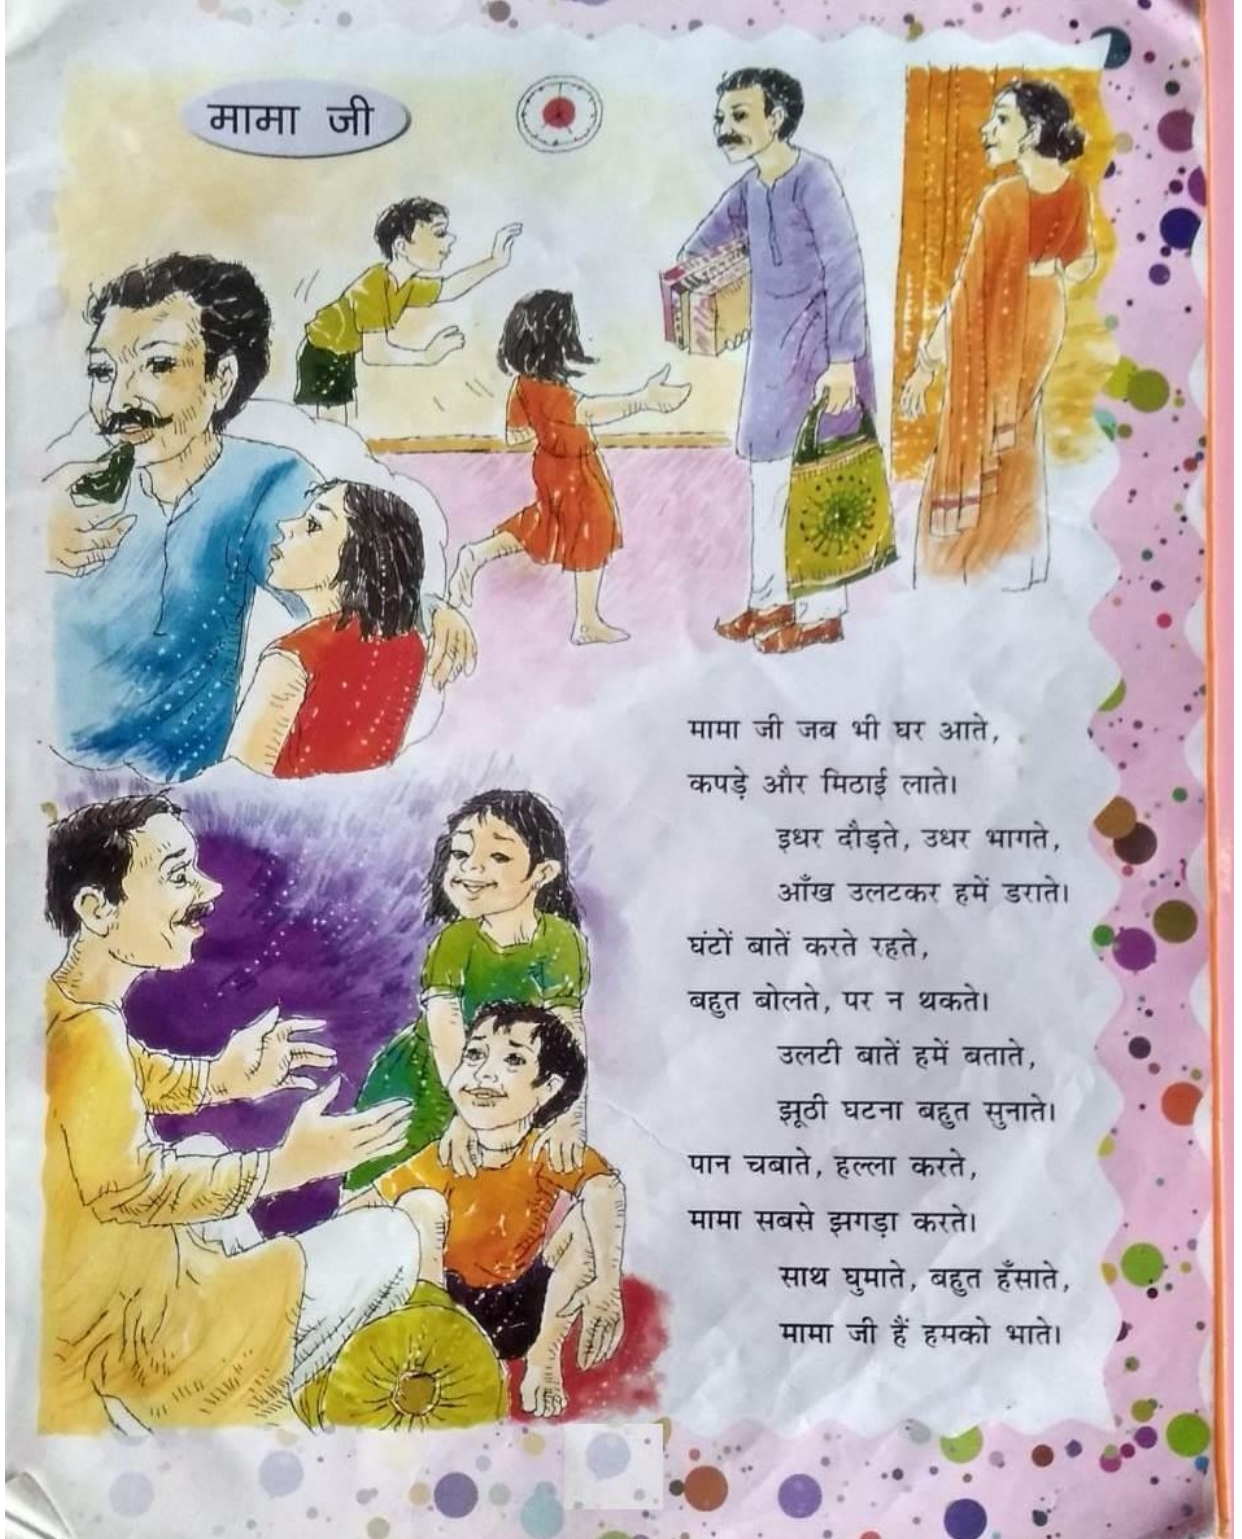 मामा जी
मामा जी जब भी घर आते,
कपड़े और मिठाई लाते।
इधर दौड़ते, उधर भागते,
आँख उलटकर हमें डराते।
घंटों बातें करते रहते,
बहुत बोलते, पर न थकते।
उलटी बातें हमें बताते,
झूठी घटना बहुत सुनाते।
पान चबाते, हल्ला करते,
मामा सबसे झगड़ा करते।
साथ घुमाते, बहुत हँसाते,
मामा जी हैं हमको भाते।